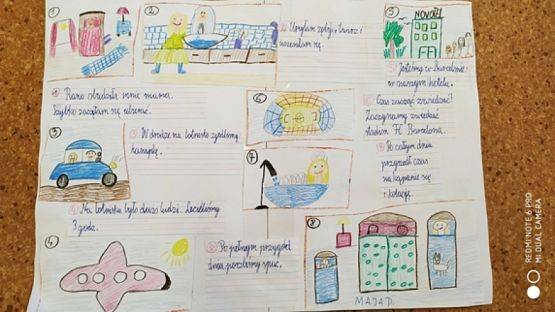 1
Rano obudziła mnie mama.
Szybko zaczęłam się ubierać.
2
Umyłam zęby i twarz i
uczesałam się.
3
W drodze na lotnisko zjedliśmy
kanapkę.
4
Na lotnisku było dużo ludzi. Lecieliśmy
3 godz.
5
NOVOTEL
Jesteśmy w Barcelonie -
w naszym hotelu.
6
Czas zacząć zwiedzać!
Zaczynamy zwiedzać
stadion FC Barcelona.
7
Po całym dniu
przyszedł czas
na kąpanie się
i kolację.
8
Po pełnym przygód
dniu poszliśmy spać.
MAJA P.
REDMI NOTE 6 PRO
MI DUAL CAMERA